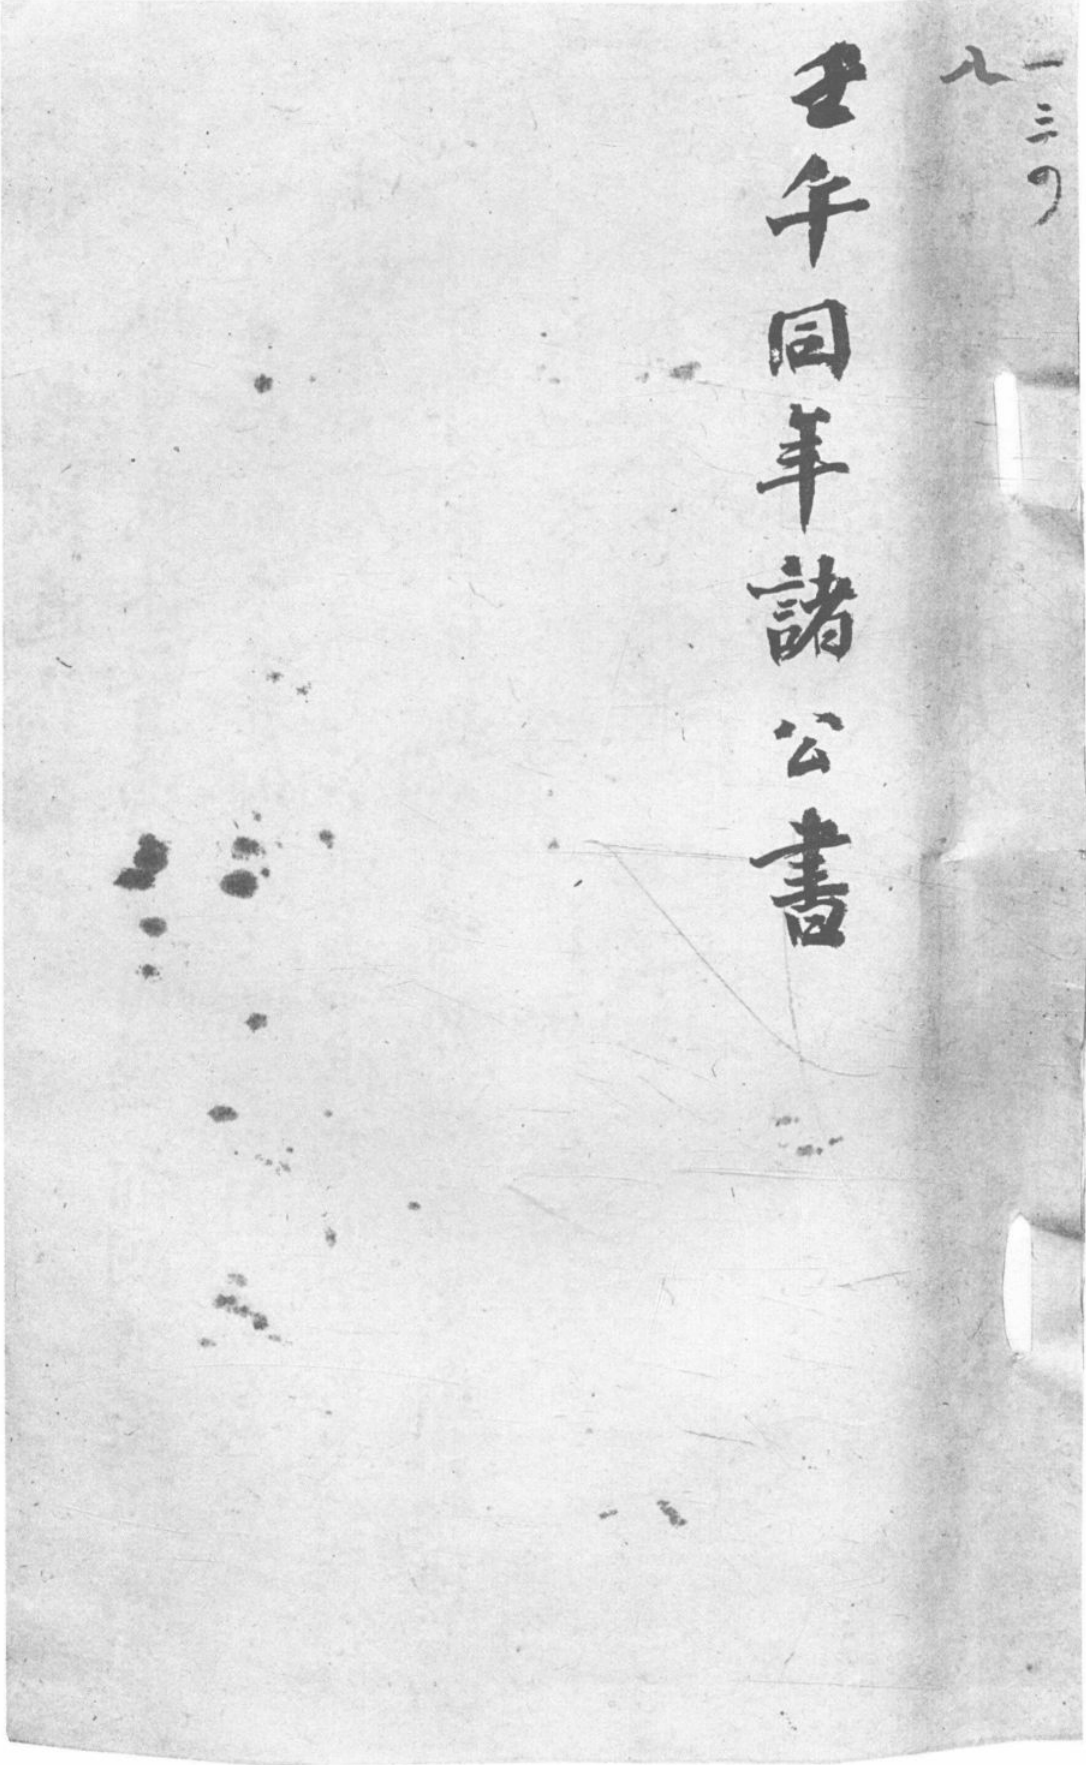 一三の
八
壬午同年諸公書